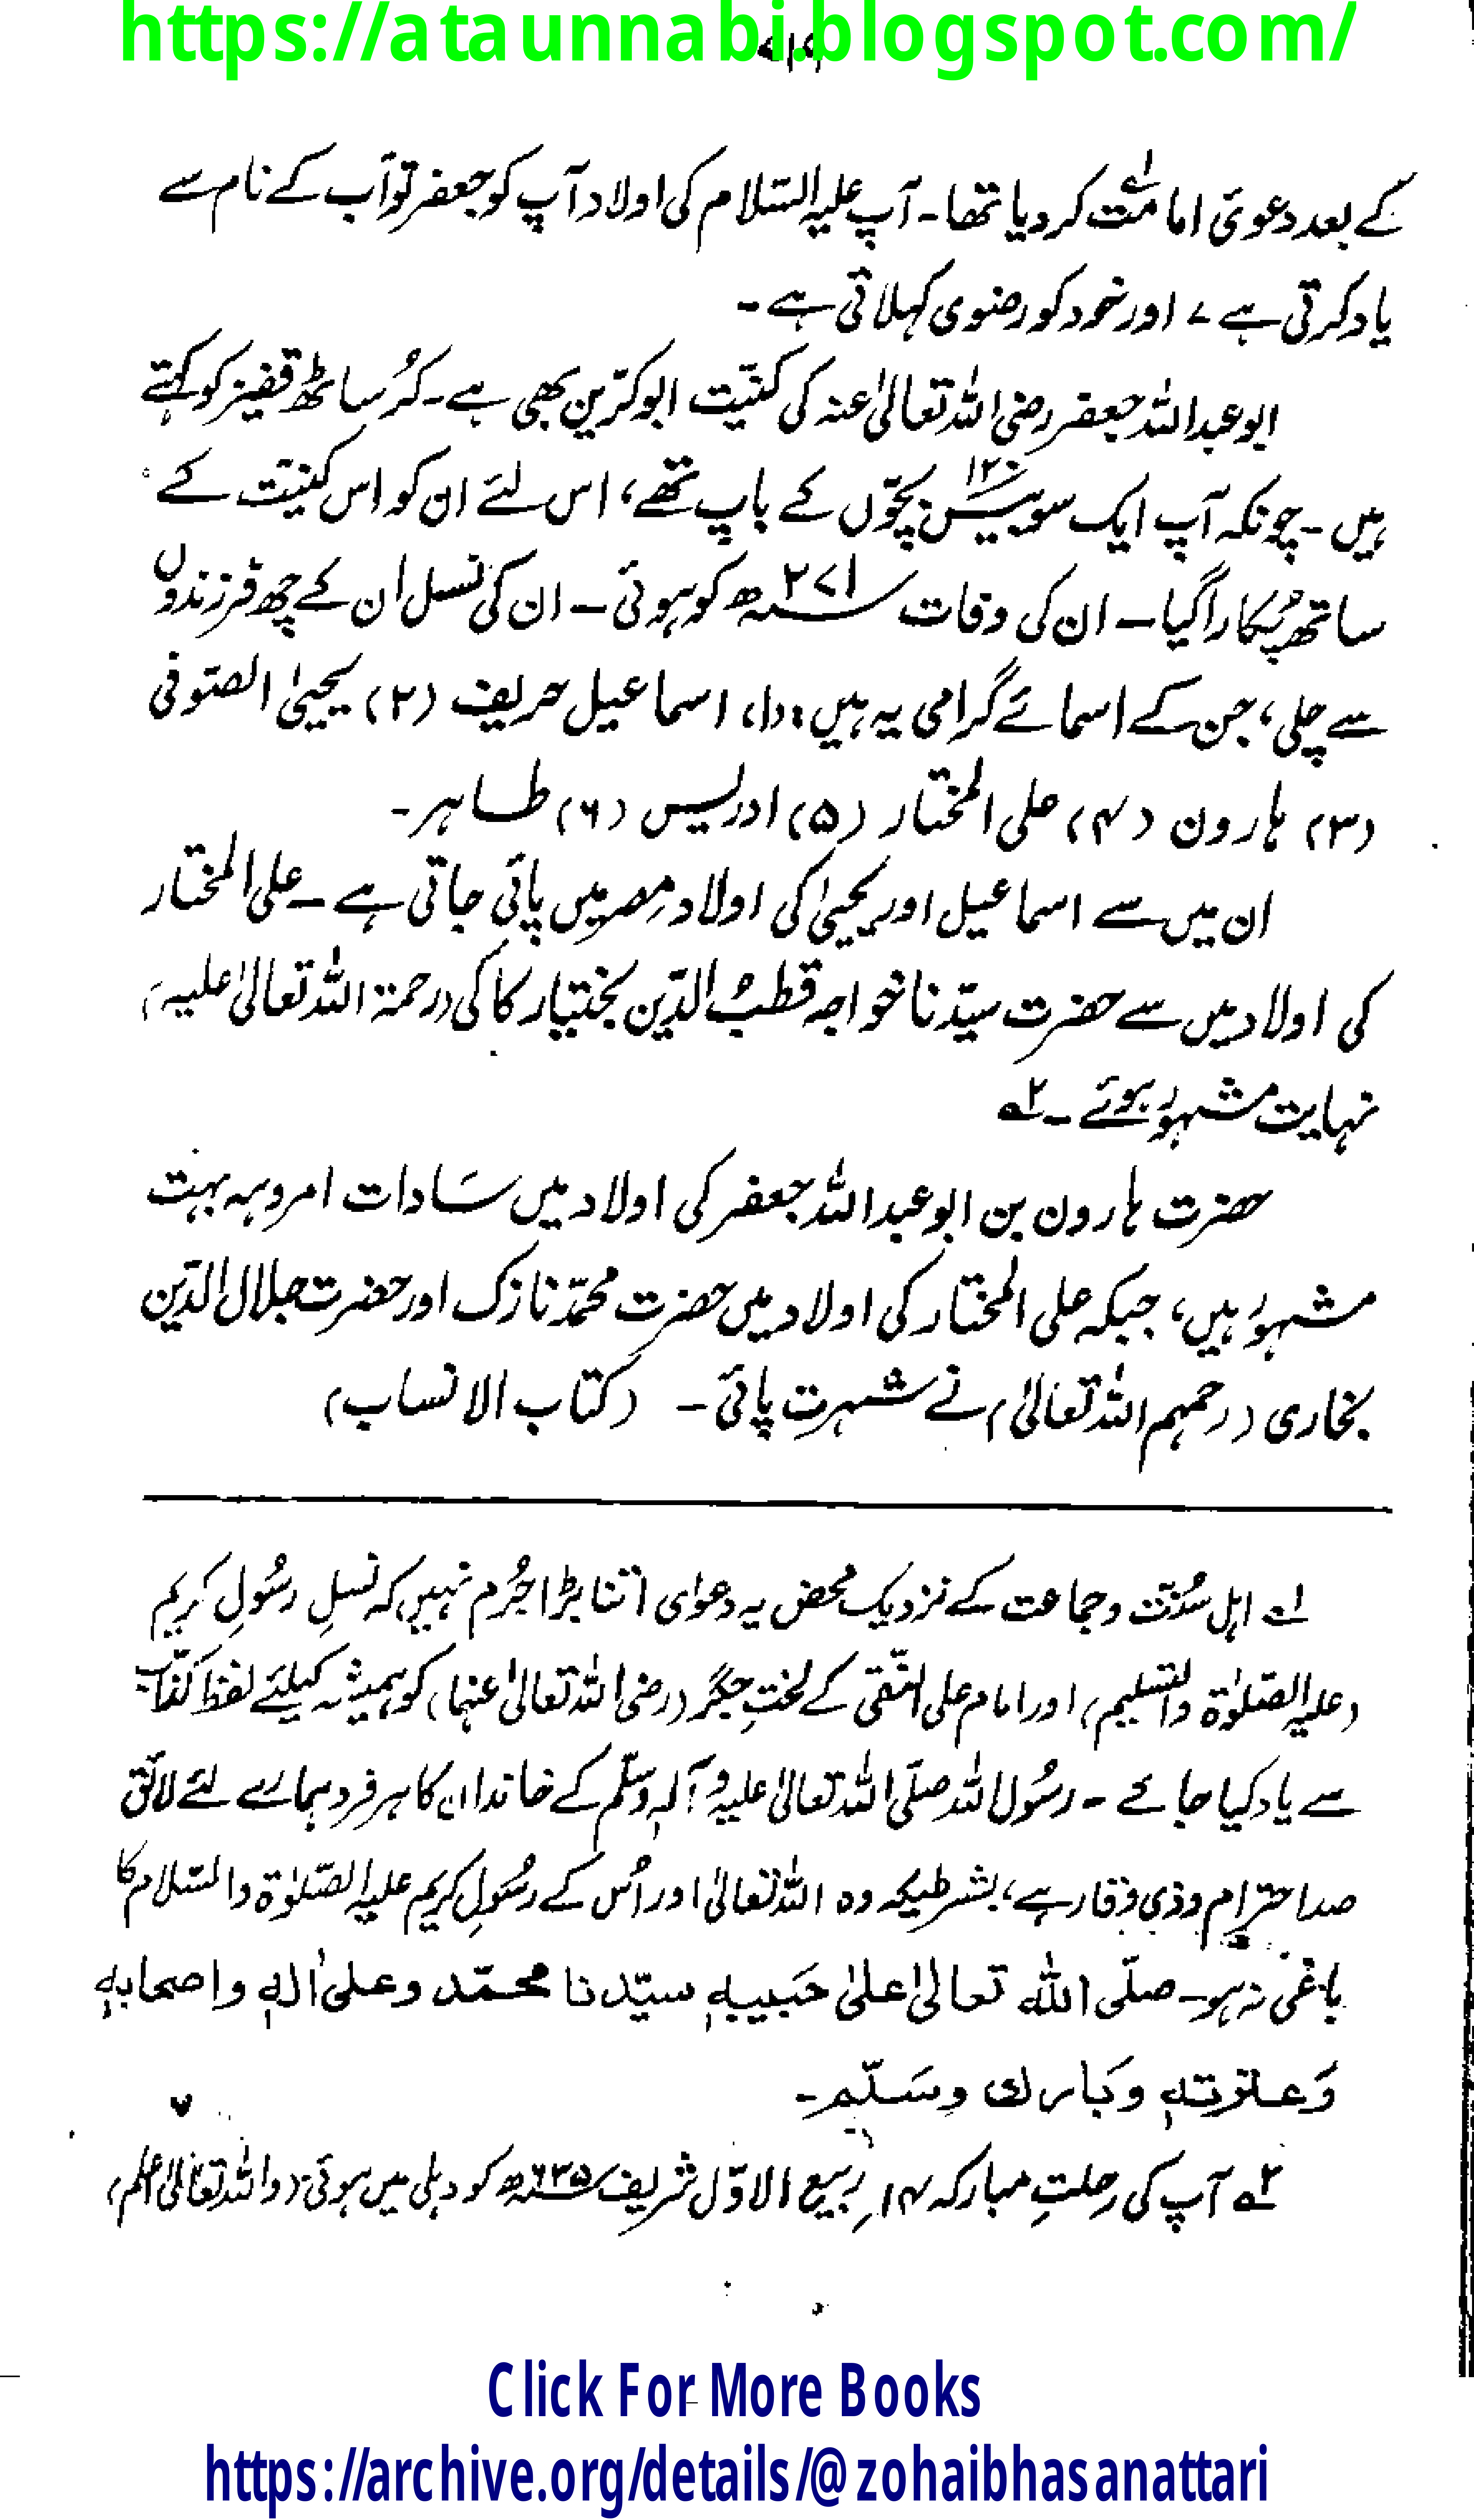 https://ataunnabi.blogspot.com/
کے بعد دعویٰ امامت کر دیا تھا۔ آپ علیہ السّلام کی اولاد آپ کو جعفر توّاب کے نام سے
یاد کرتی ہے، اور خود کو رضوی کہلاتی ہے۔
ابو عبداللہ جعفر رضی اللہ تعالیٰ عنہ کی کنیّت ابو کرّین بھی ہے۔ کُر ساٹھ قفیز کو کہتے
ہیں۔ چونکہ آپ ایک سو بیس ۱۲۰ بچّوں کے باپ تھے، اس لئے ان کو اس کنیّت کے
ساتھ پُکارا گیا۔ ان کی وفات ۲۷۱ھ کو ہوئی۔ ان کی نسل ان کے چھ فرزندوں
سے چلی، جن کے اسمائے گرامی یہ ہیں: (۱) اسماعیل حریف (۲) یحییٰ الصّوفی
(۳) ہارون (۴) علی المختار (۵) ادریس (۶) طاہر۔
ان میں سے اسماعیل اور یحییٰ کی اولاد مِصر میں پائی جاتی ہے۔ علی المختار
کی اولاد میں سے حضرت سیّدنا خواجہ قطبُ الدّین بختیار کاکی (رحمۃ اللہ تعالیٰ علیہ)
نہایت مشہور ہوئے۔ ۲ھ
حضرت ہارون بن ابو عبداللہ جعفر کی اولاد میں سَادات امروہہ بہت
مشہور ہیں، جبکہ علی المختار کی اولاد میں حضرت محمّد نازک اور حضرت جلال الدّین
بخاری (رحمہم اللہ تعالیٰ) نے شہرت پائی۔ (کتاب الانساب)
۱ھ اہلِ سُنّت و جماعت کے نزدیک محض یہ دعوٰی اتنا بڑا جُرم نہیں کہ نسلِ رسُولِ کریم
(علیہ الصّلوٰۃ والتسلیم) اور امام علی النّقی کے لختِ جگر (رضی اللہ تعالیٰ عنہما) کو ہمیشہ کیلئے لفظ کذّاب
سے یاد کیا جائے۔ رسُول اللہ صلّی اللہ تعالیٰ علیہ وآلہٖ وسلّم کے خاندان کا ہر فرد ہمارے لئے لائق
صد احترام و ذی وقار ہے، بشرطیکہ وہ اللہ تعالیٰ اور اُس کے رسُولِ کریم علیہ الصّلوٰۃ والسّلام کا
باغی نہ ہو۔ صلّی اللہ تعالیٰ علیٰ حَبیبہٖ سیّدنا محمّد وعلیٰ اٰلہٖ واصحابہٖ
وَعترتہٖ وبَارک وسَلّم۔
۲ھ آپ کی رحلتِ مبارکہ ۱۴ ربیع الاوّل شریف ۶۳۵ھ کو دہلی میں ہوئی (واللہ تعالیٰ اعلم)
Click For More Books
https://archive.org/details/@zohaibhasanattari